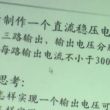 制作一个直流稳压电
三路输出，输出电压分
每路输出电流不小于300
思考：
怎样实现一个输出电压可
怎样实现